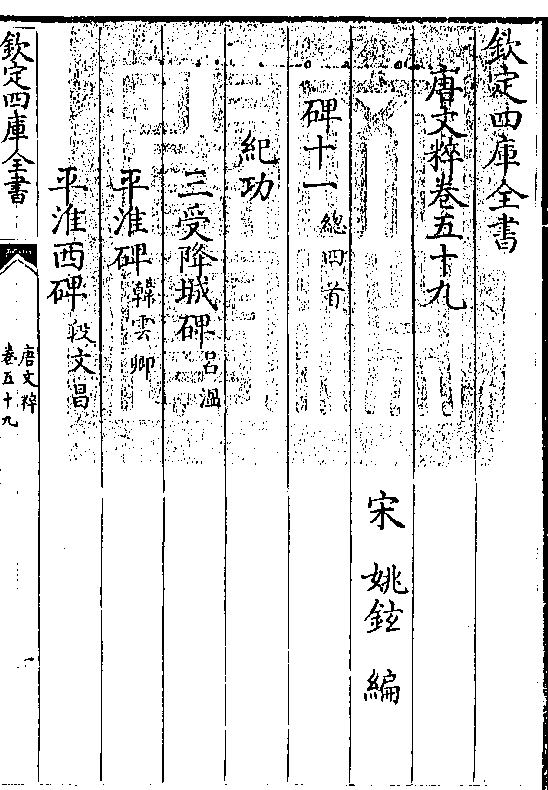 欽定四庫全書
唐文粹卷五十九
宋 姚鉉 編
碑十一 總四首
紀功
三受降城碑 呂溫
平淮碑 韓雲卿
平淮西碑 段文昌
欽定四庫全書
唐文粹
卷五十九
一